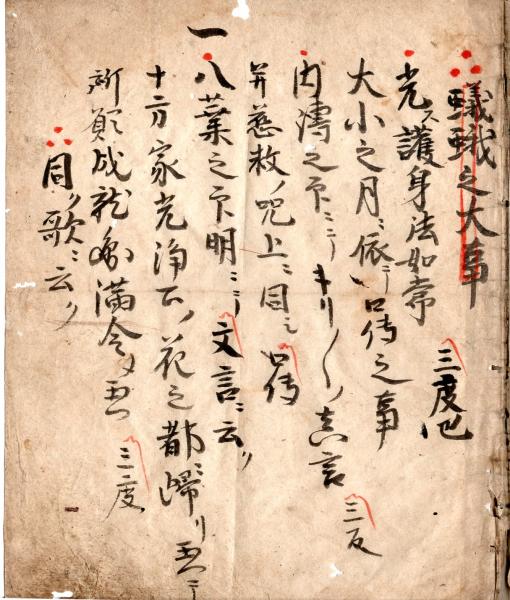 蟻蛾之大事
先ス護身法如常 三度也
大小之月ニ依テ口傳之事
内縛之印ニニテ キリ〱〱ノ真言 三反
并慈救ノ呪上ニ同シ 口傳
一八葉之印明ニテ 文言ニ云ク
十方家光浄土ノ花之都ニ歸リ玉ヘ
所願成就圓満令メ玉ヘ 三度
同ク歌ニ云ク